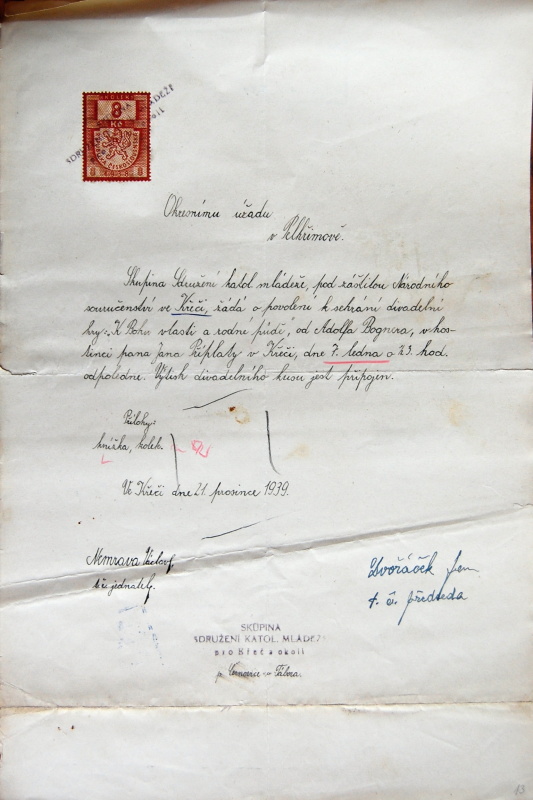 KOLEK
8
Kč
REPUBLIKA ČESKOSLOVENSKÁ
8 8
SDRUŽENÍ KATOL. MLÁDEŽE
Okresnímu úřadu
v Pelhřimově.
Skupina Sdružení katol. mládeže, pod záštitou Národního
souručenství ve Křeči, žádá o povolení k sehrání divadelní
hry: K Bohu vlasti a rodné půdě, od Adolfa Bognera, v hos-
tinci pana Jana Příplaty v Křeči, dne 7. ledna o 1/2 3. hod.
odpoledne. Výtisk divadelního kusu jest připojen.
Přílohy:
knížka, kolek.
Ve Křeči dne 21. prosince 1939.
Nemrava Václav,
t.č. jednatel.
Dvořáček Jan
t. č. předseda
SKUPINA
SDRUŽENÍ KATOL. MLÁDEŽE
pro Křeč a okolí
p. Černovice u Tábora.